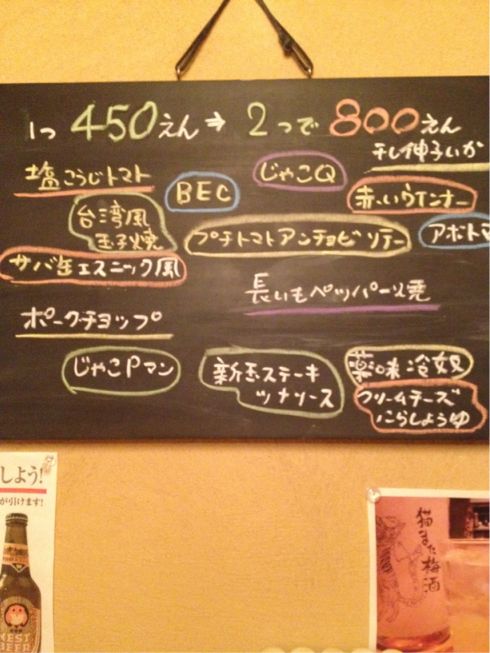 1つ 450えん ⇒ 2つで 800えん
干し伸子いか
塩こうじトマト
BEC
じゃこQ
赤いウインナー
台湾風
玉子焼
プチトマトアンチョビソテー
アボトマ
サバ缶エスニック風
長いもペッパー焼
ポークチョップ
じゃこPマン
新玉ステーキ
ツナソース
薬味冷奴
クリームチーズ
にらしょうゆ
しよう!
が引けます!
NEST
BEER
猫また梅酒